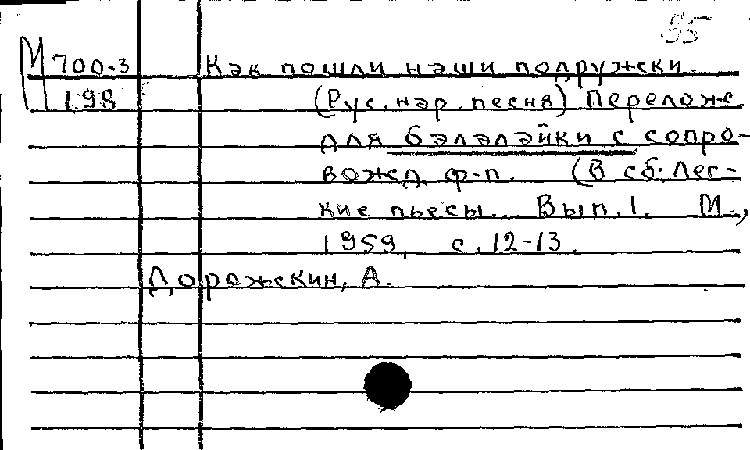 95
М 700-3 Как пошли наши подружки.
198 (Рус. нар. песня) Перелож.
для балалайки с сопро-
вожд. ф-п. (В сб: Лег-
кие пьесы. Вып. 1. М.,
1959, с. 12-13.
Дорожкин, А.